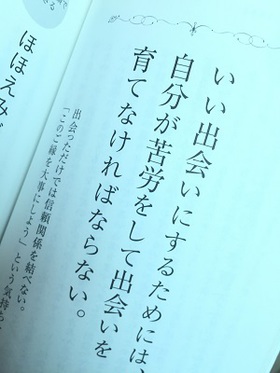 いい出会いにするためには、
自分が苦労をして出会いを
育てなければならない。
出会っただけでは信頼関係を結べない。
「このご縁を大事にしよう」という気持ち
ほほえみ